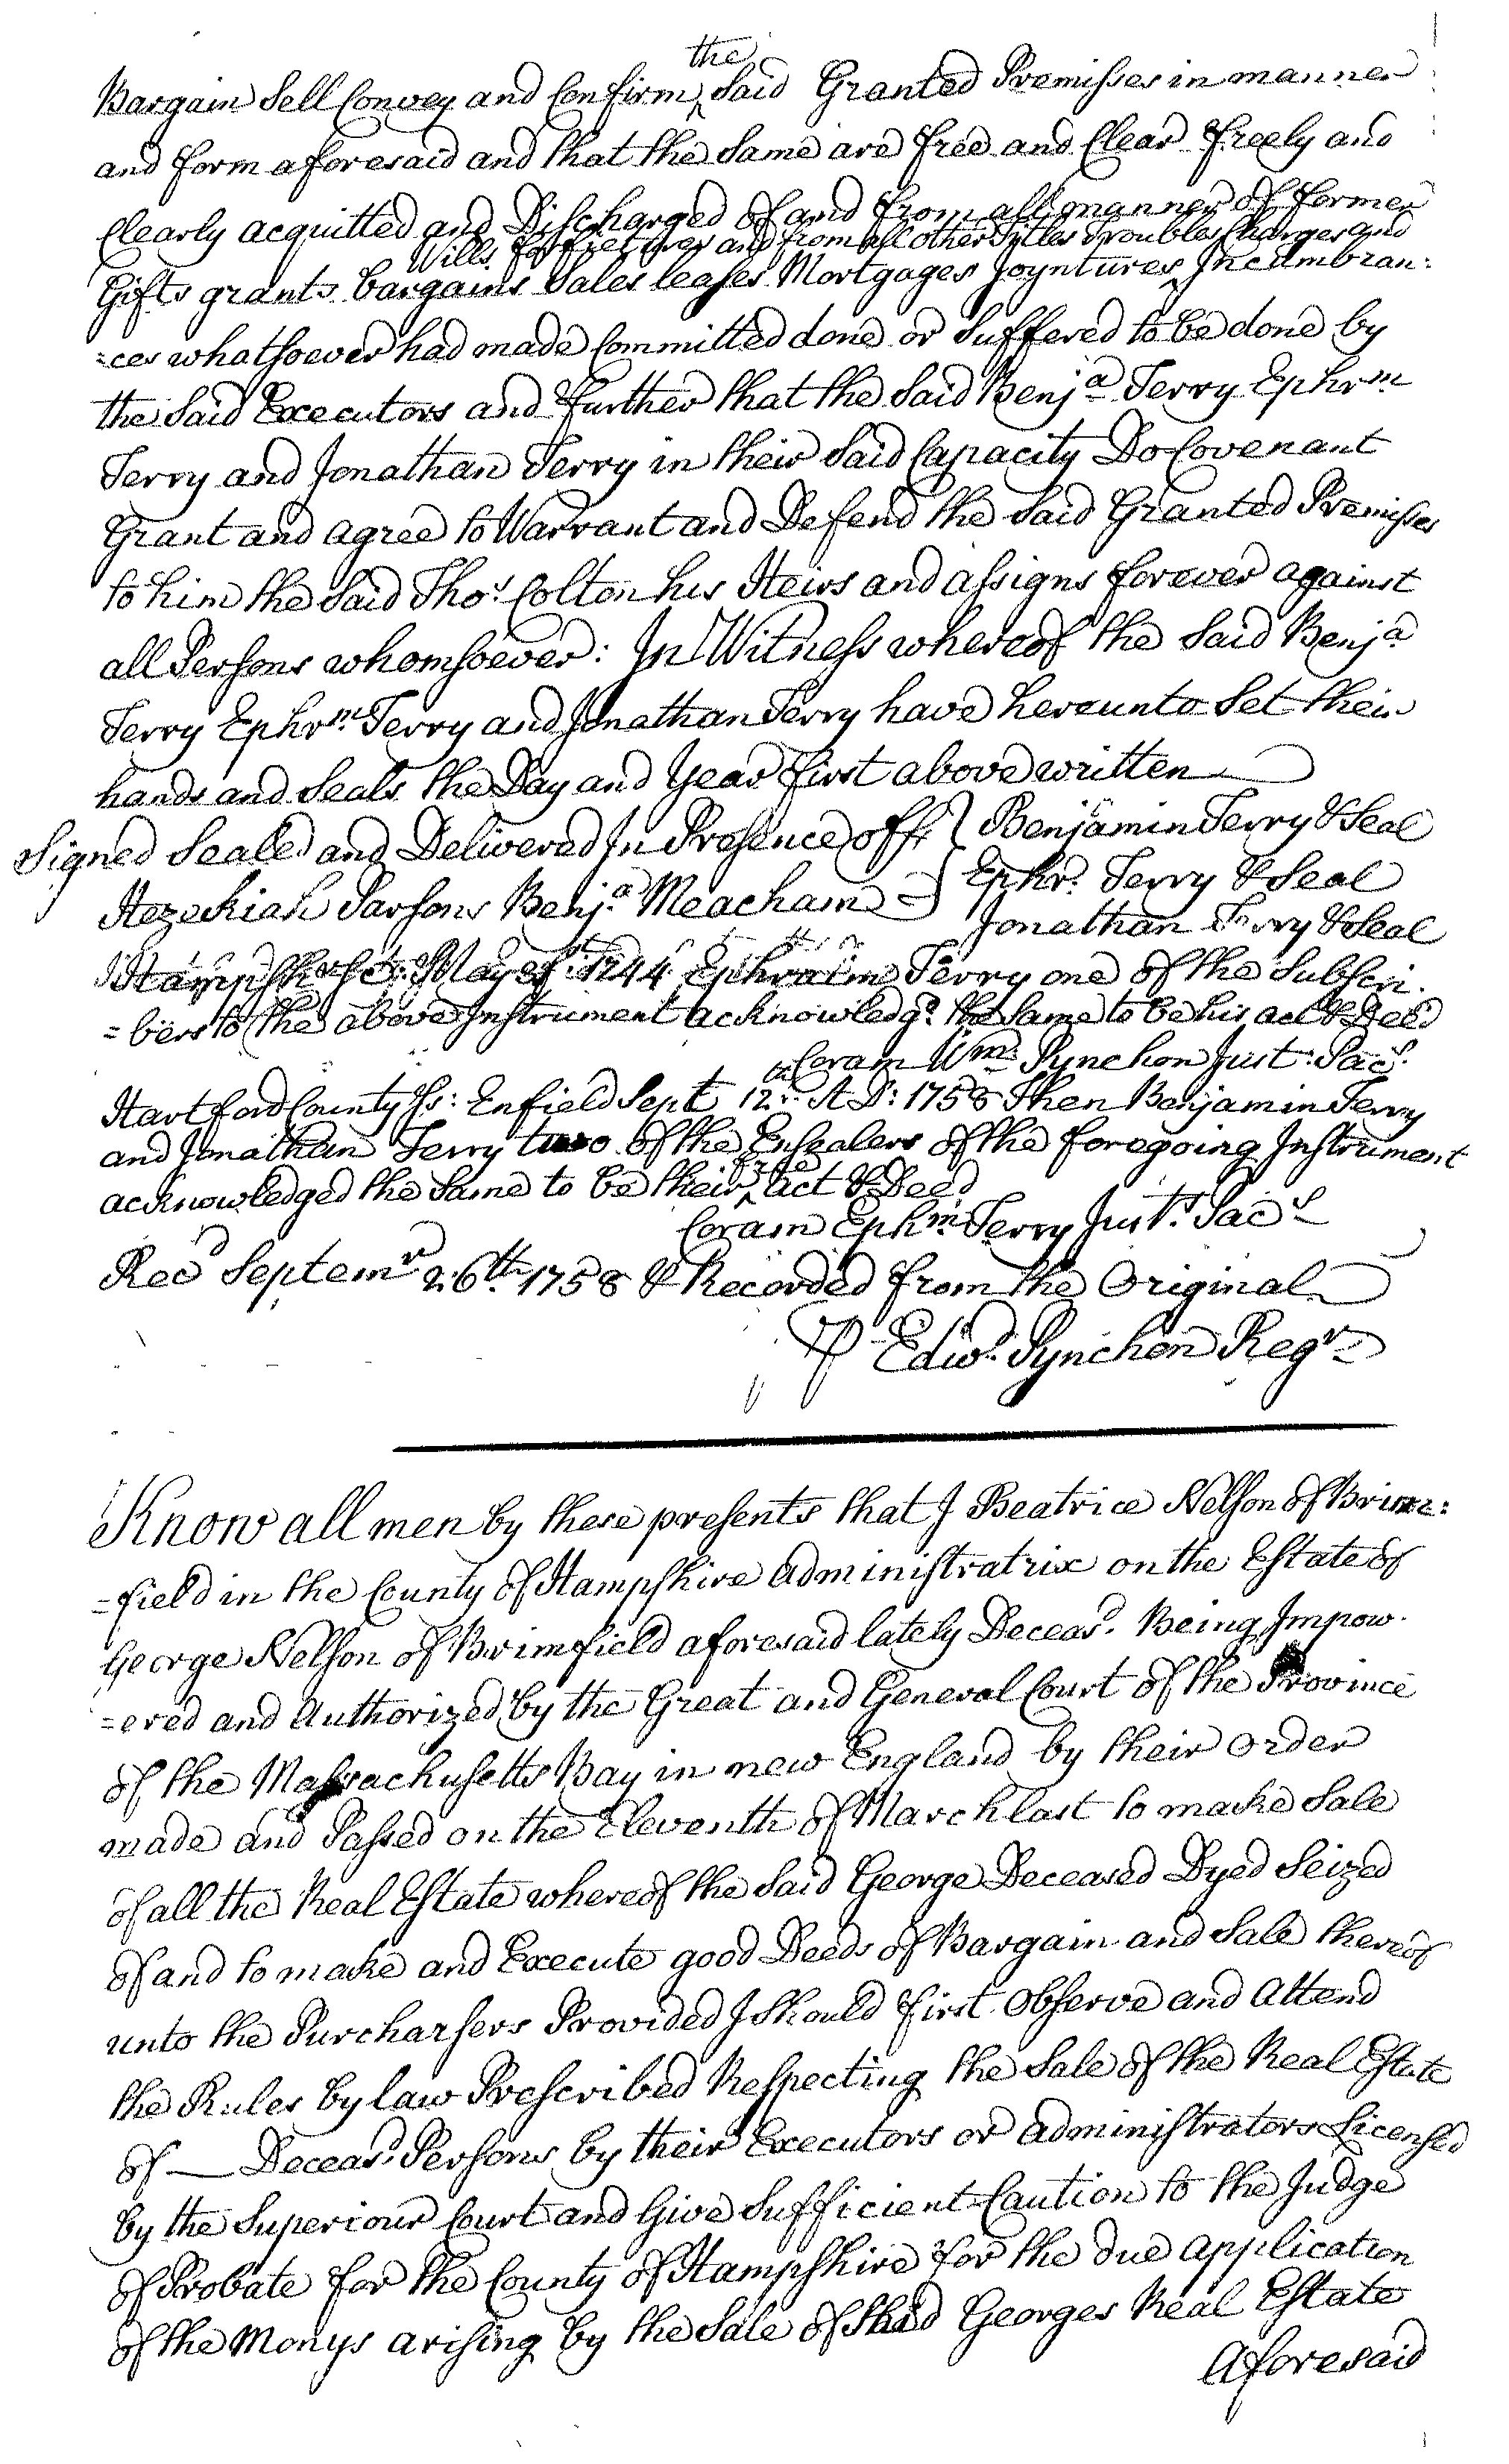 the
Bargain Sell Convey and Confirm ^ Said Granted Premisses in manner
and form aforesaid and that the Same are free and Clear freely and
Clearly acquitted and Discharged of and from all manner of former
Wills Forfietures and from all other Titles Troubles Charges and
Gifts grants bargains Sales leases Mortgages Joyntures ^ Incumbran:
=ces whatsoever had made Committed done or Suffered to be done by
the Said Executors and Further that the Said Benja Terry Ephrm
Terry and Jonathan Terry in their Said Capacity Do Covenant
Grant and agree to Warrant and Defend the Said Granted Premisses
to him the Said Thos Colton his Heirs and assigns forever against
all Persons whomsoever: In Witness whereof the Said Benja
Terry Ephrm Terry and Jonathan Terry have hereunto Set their
hands and Seals the Day and Year first above written
Signed Sealed and Delivered In Presence off } Benjamin Terry & Seal
Hezekiah Parsons Benja Meacham } Ephr. Terry & Seal
Jonathan Terry & Seal
Hampshire Sc: May 1744 Ephraim Terry one of the Subscri.
=bers to the above Instrument acknowledgd the Same to be his act & Deed
Coram Wm Pynchon Just: Pacs
Hartford County Ss: Enfield Sept 12th A D: 1758 Then Benjamin Terry
and Jonathan Terry two of the Ensealers of the foregoing Instrument
acknowledged the Same to be their ^ free act & Deed
Coram Ephm Terry Just: Pacs
Recd Septemr 26th 1758 & Recorded from the Original
P Edwd Pynchon Regr
Know all men by these presents that I Beatrice Nelson of Brim:
=field in the County of Hampshire administratrix on the Estate of
George Nelson of Brimfield aforesaid lately Deceasd. Being Impow.
=ered and Authorized by the Great and General Court of the Province
of the Massachusetts Bay in new England by their order
made and Passed on the Eleventh of March last to make Sale
of all the Real Estate whereof the Said George Deceased Dyed Seized
of and to make and Execute good Deeds of Bargain and Sale thereof
unto the Purcharsers Provided I Should first Observe and Attend
the Rules by law Prescribed Respecting the Sale of the Real Estate
of — Deceasd Persons by their Executors or administrators Licensed
by the Superiour Court and Give Sufficient Caution to the Judge
of Probate for the County of Hampshire for the due application
of the Monys arising by the Sale of Said Georges Real Estate
Aforesaid